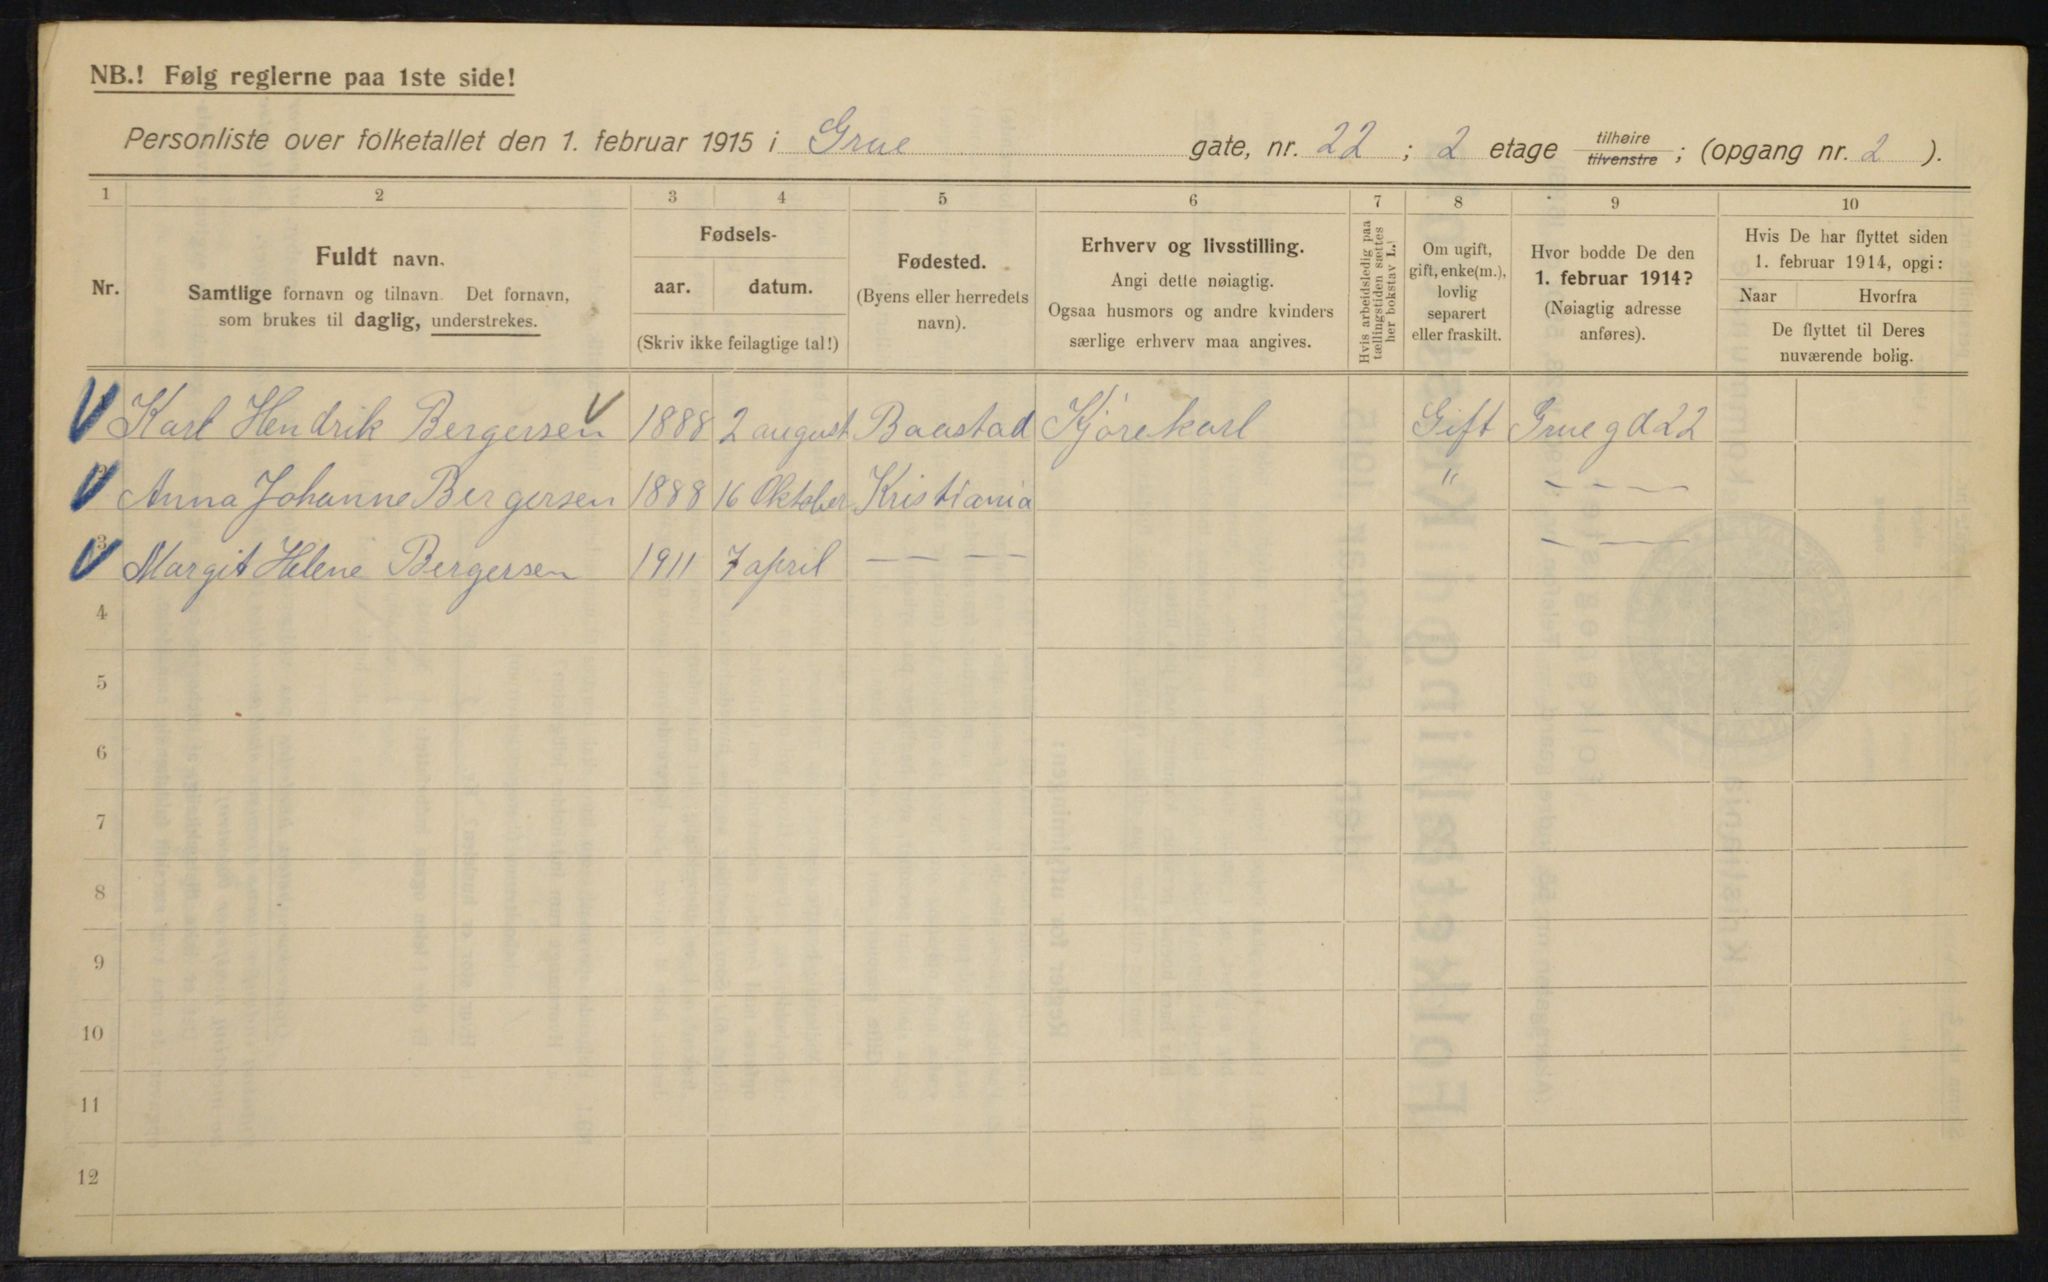 NB.! Følg reglerne paa 1ste side!
Personliste over folketallet den 1. februar 1915 i Grue gate, nr. 22 ; 2 etage tilhøire tilvenstre ; (opgang nr. 2 ).
1 2 3 4 5 6 7 8 9 10
Nr.
Fuldt navn.
Samtlige fornavn og tilnavn. Det fornavn,
som brukes til daglig, understrekes.
Fødsels-
aar. datum.
(Skriv ikke feilagtige tal!)
Fødested.
(Byens eller herredets
navn).
Erhverv og livsstilling.
Angi dette nøiagtig.
Ogsaa husmors og andre kvinders
særlige erhverv maa angives.
Hvis arbeidsledig paa
tællingstiden sættes
her bokstav L.
Om ugift,
gift, enke(m.),
lovlig
separert
eller fraskilt.
Hvor bodde De den
1. februar 1914?
(Nøiagtig adresse
anføres).
Hvis De har flyttet siden
1. februar 1914, opgi:
Naar Hvorfra
De flyttet til Deres
nuværende bolig.
Karl Hendrik Bergersen 1888 2 august Baastad Kjørekarl Gift Gruegd 22
Anna Johanne Bergersen 1888 16 Oktober Kristiania " — — — —
3 Margit Helene Bergersen 1911 7 april — — — — — —
4
5
6
7
8
9
10
11
12